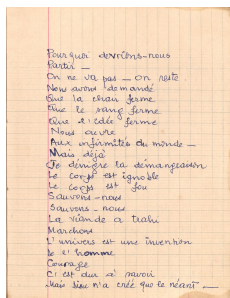 Pourquoi devrions-nous
Partir —
On ne va pas — on reste
Nous avons demandé
Que la chair ferme
Que le sang ferme
Que l'idée ferme
Nous ouvre
Aux infirmités du monde —
Mais déjà
Je dénigre la démangeaison
Le corps est ignoble
Le corps est fou
Sauvons-nous
Sauvons-nous
La viande a trahi
Marchons
L'univers est une invention
de l'homme
Courage
C'est dur à savoir
Mais Dieu n'a créé que le néant —